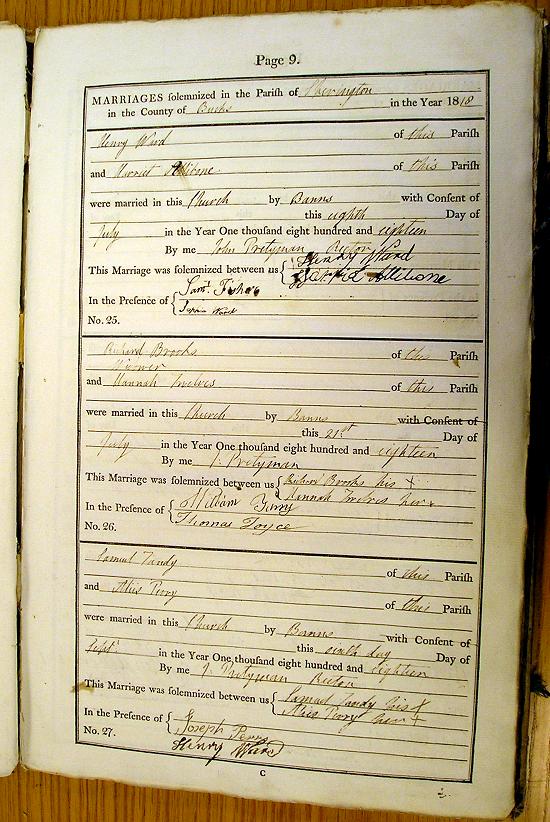 Page 9.
MARRIAGES solemnized in the Parish of Sherington
in the County of Bucks in the Year 1818
Henry Ward of this Parish
and Harriet Allibone of this Parish
were married in this Church by Banns with Consent of
this eighth Day of
July in the Year One thousand eight hundred and eighteen
By me John Pretyman Rector
This Marriage was solemnized between us { Henry Ward
Harriet Allibone
In the Presence of { Saml. Fisher
Ward
No. 25.
Richard Brooks of this Parish
Widower
and Hannah Twelves of this Parish
were married in this Church by Banns with Consent of
this 21st Day of
July in the Year One thousand eight hundred and eighteen
By me J. Pretyman
This Marriage was solemnized between us { Richard Brooks his X
Hannah Twelves her x
In the Presence of { William Perry
Thomas Joyce
No. 26.
Samuel Tandy of this Parish
and Alis Perry of this Parish
were married in this Church by Banns with Consent of
this sixth day Day of
Sept. in the Year One thousand eight hundred and eighteen
By me J. Pretyman Rector
This Marriage was solemnized between us { Samuel Tandy his X
Alis Perry her +
In the Presence of { Joseph Perry
Henry Ward
No. 27.
C